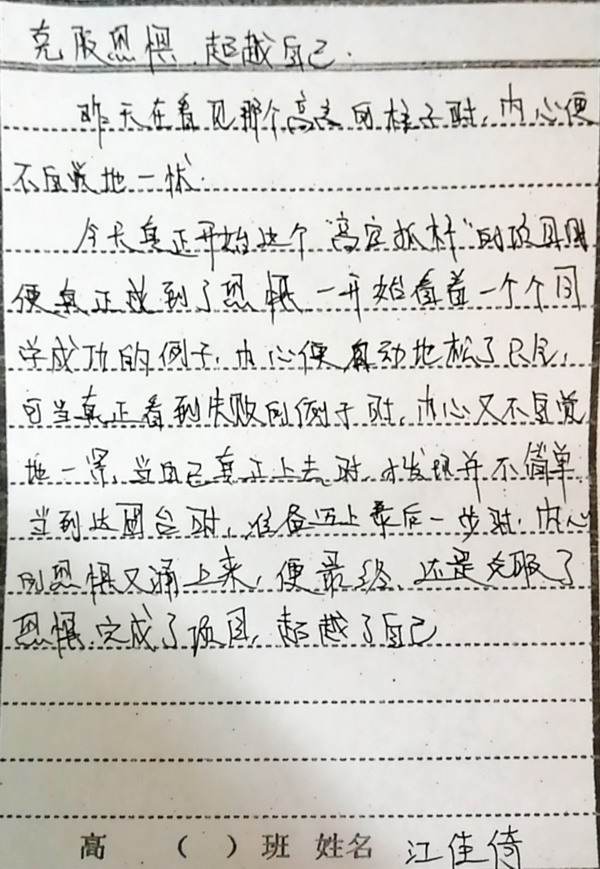 克服恐惧.超越自己.
昨天在看见那个高高的柱子时,内心便
不自觉地一怵.
今天真正开始这个"高空抓杆"的项目时
便真正感到了恐惧一开始看着一个个同
学成功的例子,内心便自动地松了口气,
可当真正看到失败的例子时,内心又不自觉
地一紧,当自己真正上去时,才发现并不简单
当到达圆台时,准备迈上最后一步时,内心
的恐惧又涌上来,便最终,还是克服了
恐惧.完成了项目,超越了自己
高 ( )班 姓名 江佳倚